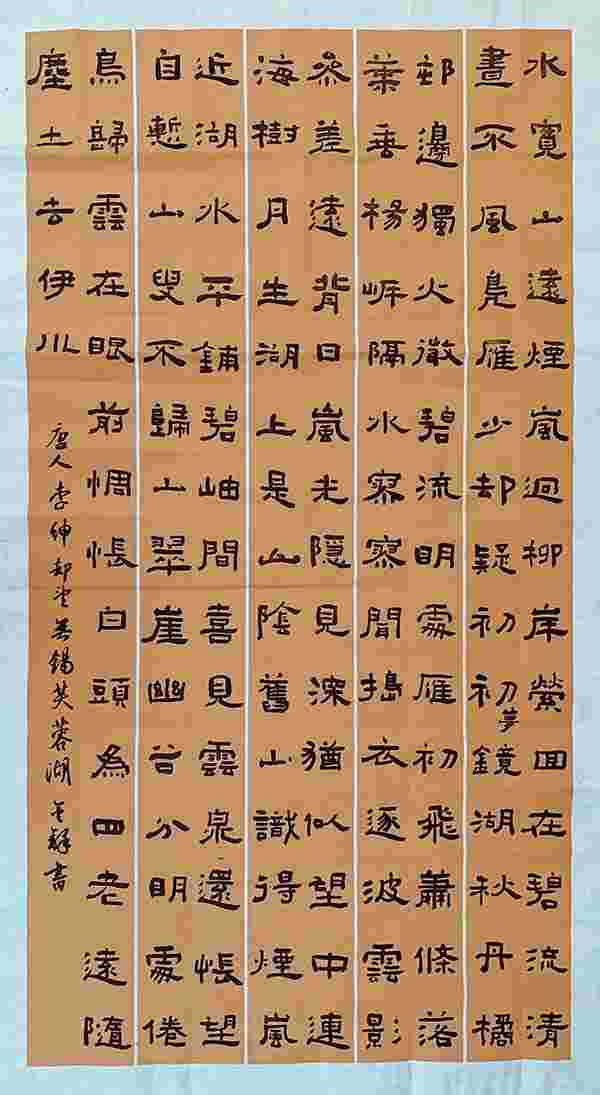 水寬山遠煙嵐迥柳岸縈回在碧流清
晝不風鳧雁少却疑初初夢鏡湖秋丹橘
邨邊獨火微碧流明處雁初飛蕭條落
葉垂楊岸隔水寥寥聞搗衣逐波雲影
參差遠背日嵐光隱見深猶似望中連
海樹月生湖上是山陰舊山識得煙嵐
近湖水平鋪碧岫間喜見雲泉還悵望
自慙山叟不歸山翠崖幽谷分明處倦
鳥歸雲在眼前惆悵白頭為四老遠隨
塵土去伊川
唐人李紳却望無錫芙蓉湖 書